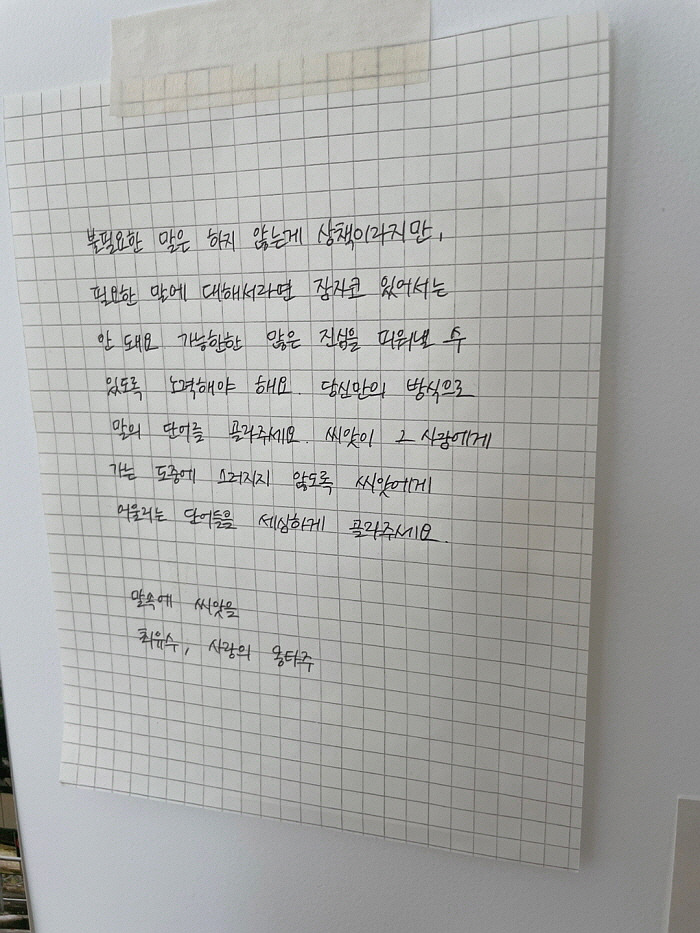 불필요한 말은 하지 않는게 상책이라지만,
필요한 말에 대해서라면 잠자코 있어서는
안 돼요 가능한한 많은 진심을 피워낼 수
있도록 노력해야 해요. 당신만의 방식으로
말의 단어를 골라주세요. 씨앗이 그 사랑에게
가는 도중에 스러지지 않도록 씨앗에게
어울리는 단어들을 세심하게 골라주세요.
말속에 씨앗을
최유수, 사랑의 몽타주